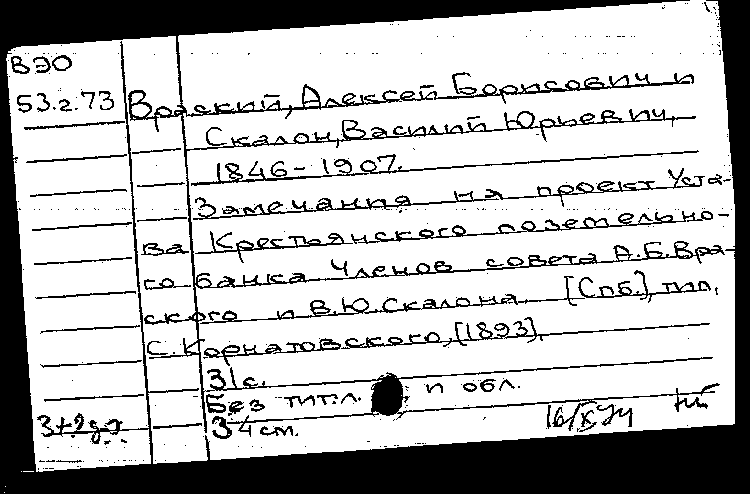 ВЭО
53.г.73 Враский, Алексей Борисович и
Скалон, Василий Юрьевич,
1846-1907.
Замечания на проект Уста-
ва Крестьянского поземельно-
го банка Членов совета А.Б.Вра-
ского и В.Ю.Скалона. [Спб.], тип.
С. Корнатовского, [1893].
31с.
Без тит.л. и обл.
34см.